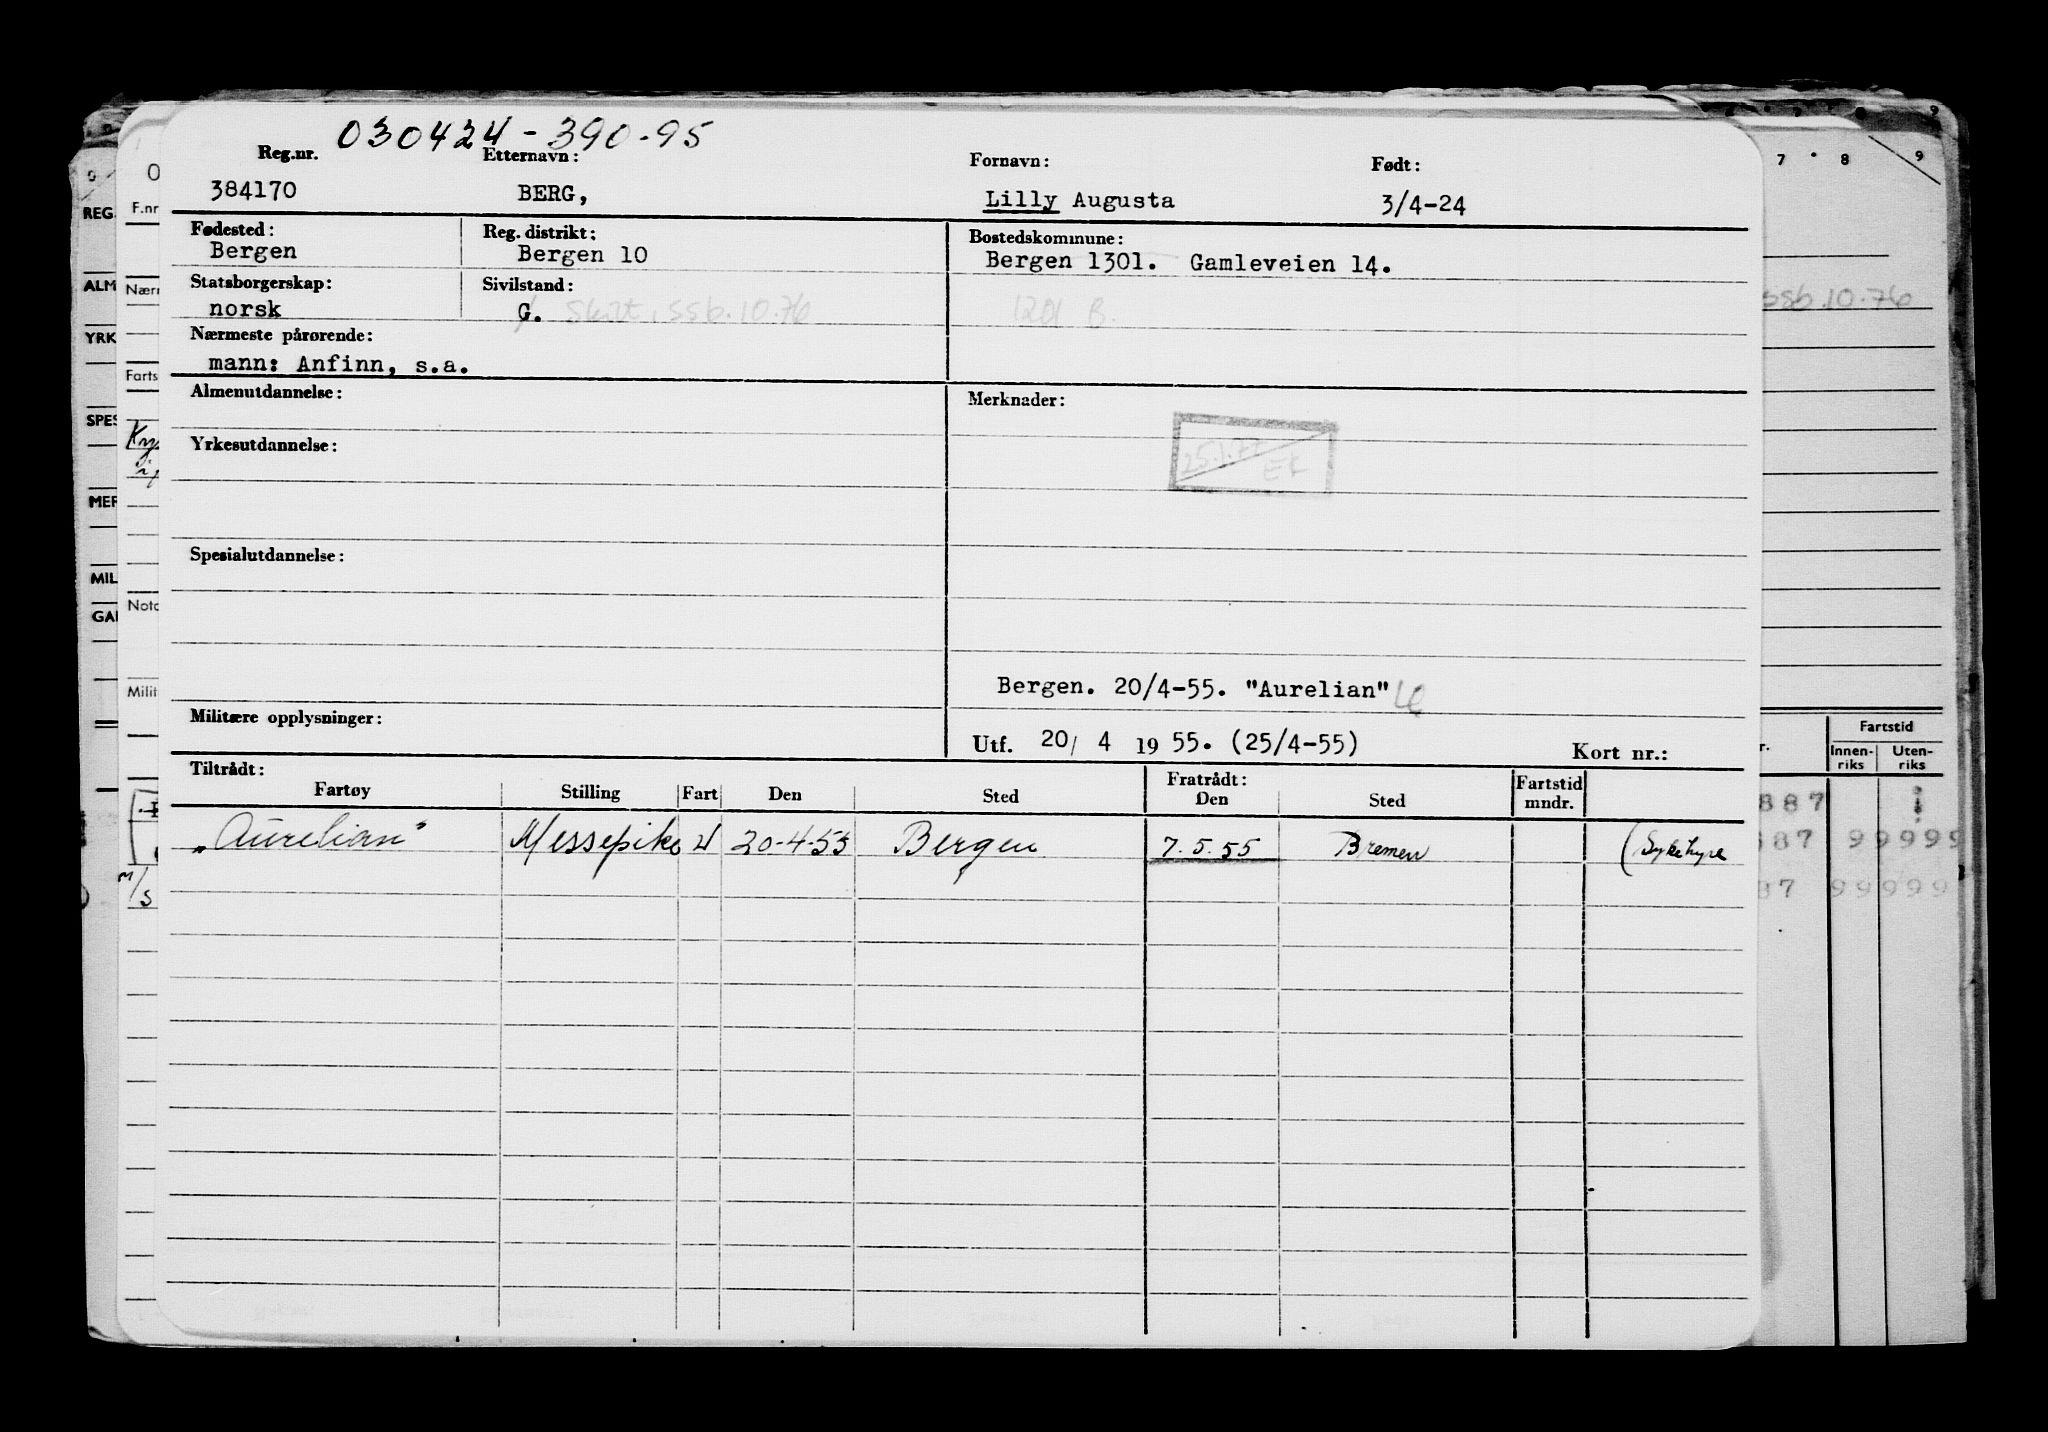 030424-390-95
Reg.nr. Etternavn: Fornavn: Født:
384170 BERG, Lilly Augusta 3/4-24
Fødested: Reg. distrikt: Bostedskommune:
Bergen Bergen 10 Bergen 1301. Gamleveien 14.
Statsborgerskap: Sivilstand:
norsk G. Skilt, ssb.10.76 1201 B.
Nærmeste pårørende:
mann: Anfinn, s.a.
Almenutdannelse: Merknader:
25.1.77
EK
Yrkesutdannelse:
Spesialutdannelse:
Bergen. 20/4-55. "Aurelian"
Militære opplysninger:
Utf. 20/ 4 19 55. (25/4-55) Kort nr.:
Tiltrådt: Fratrådt: Fartstid
Fartøy Stilling Fart Den Sted Den Sted mndr.
„Aurelian" Messepike U 20-4-55 Bergen 7.5.55 Bremen (Sykehyre
0 9
REG.
ALM
YRK
SPES
MER
MIL
GAI
O
F.nr
Nærn
Farts
Noto
Milit
M/S
7 8 9
ssb.10.76
r. Fartstid
Innen-
riks Uten-
riks
887
87 99999
87 99999